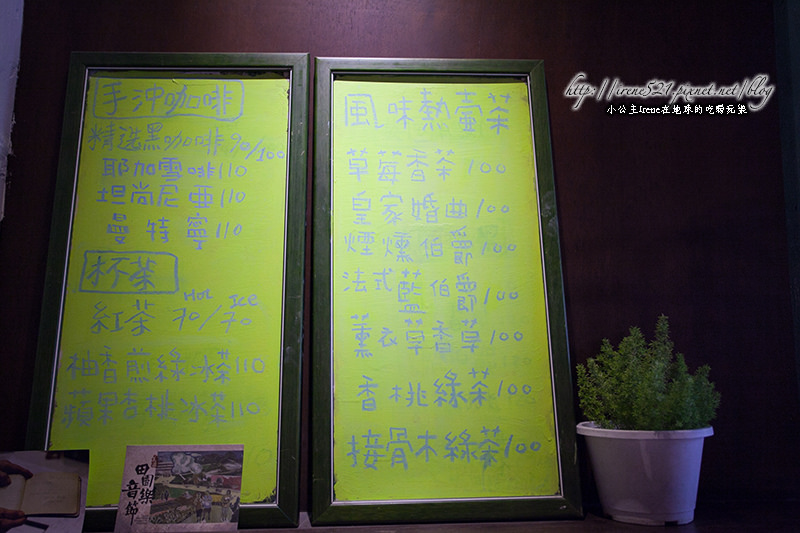 手沖咖啡
精選黑咖啡 90/100
耶加雪啡 110
坦尚尼亞 110
曼特寧 110
杯茶
Hot Ice
紅茶 70/70
柚香煎綠冰茶 110
蘋果杏桃冰茶 110
風味熱壺茶
草莓香茶 100
皇家婚曲 100
煙燻伯爵 100
法式藍伯爵 100
薰衣草香草 100
香桃綠茶 100
接骨木綠茶 100
田園樂
音節
http://irene521.pixnet.net/blog
小公主Irene在地球的吃喝玩樂